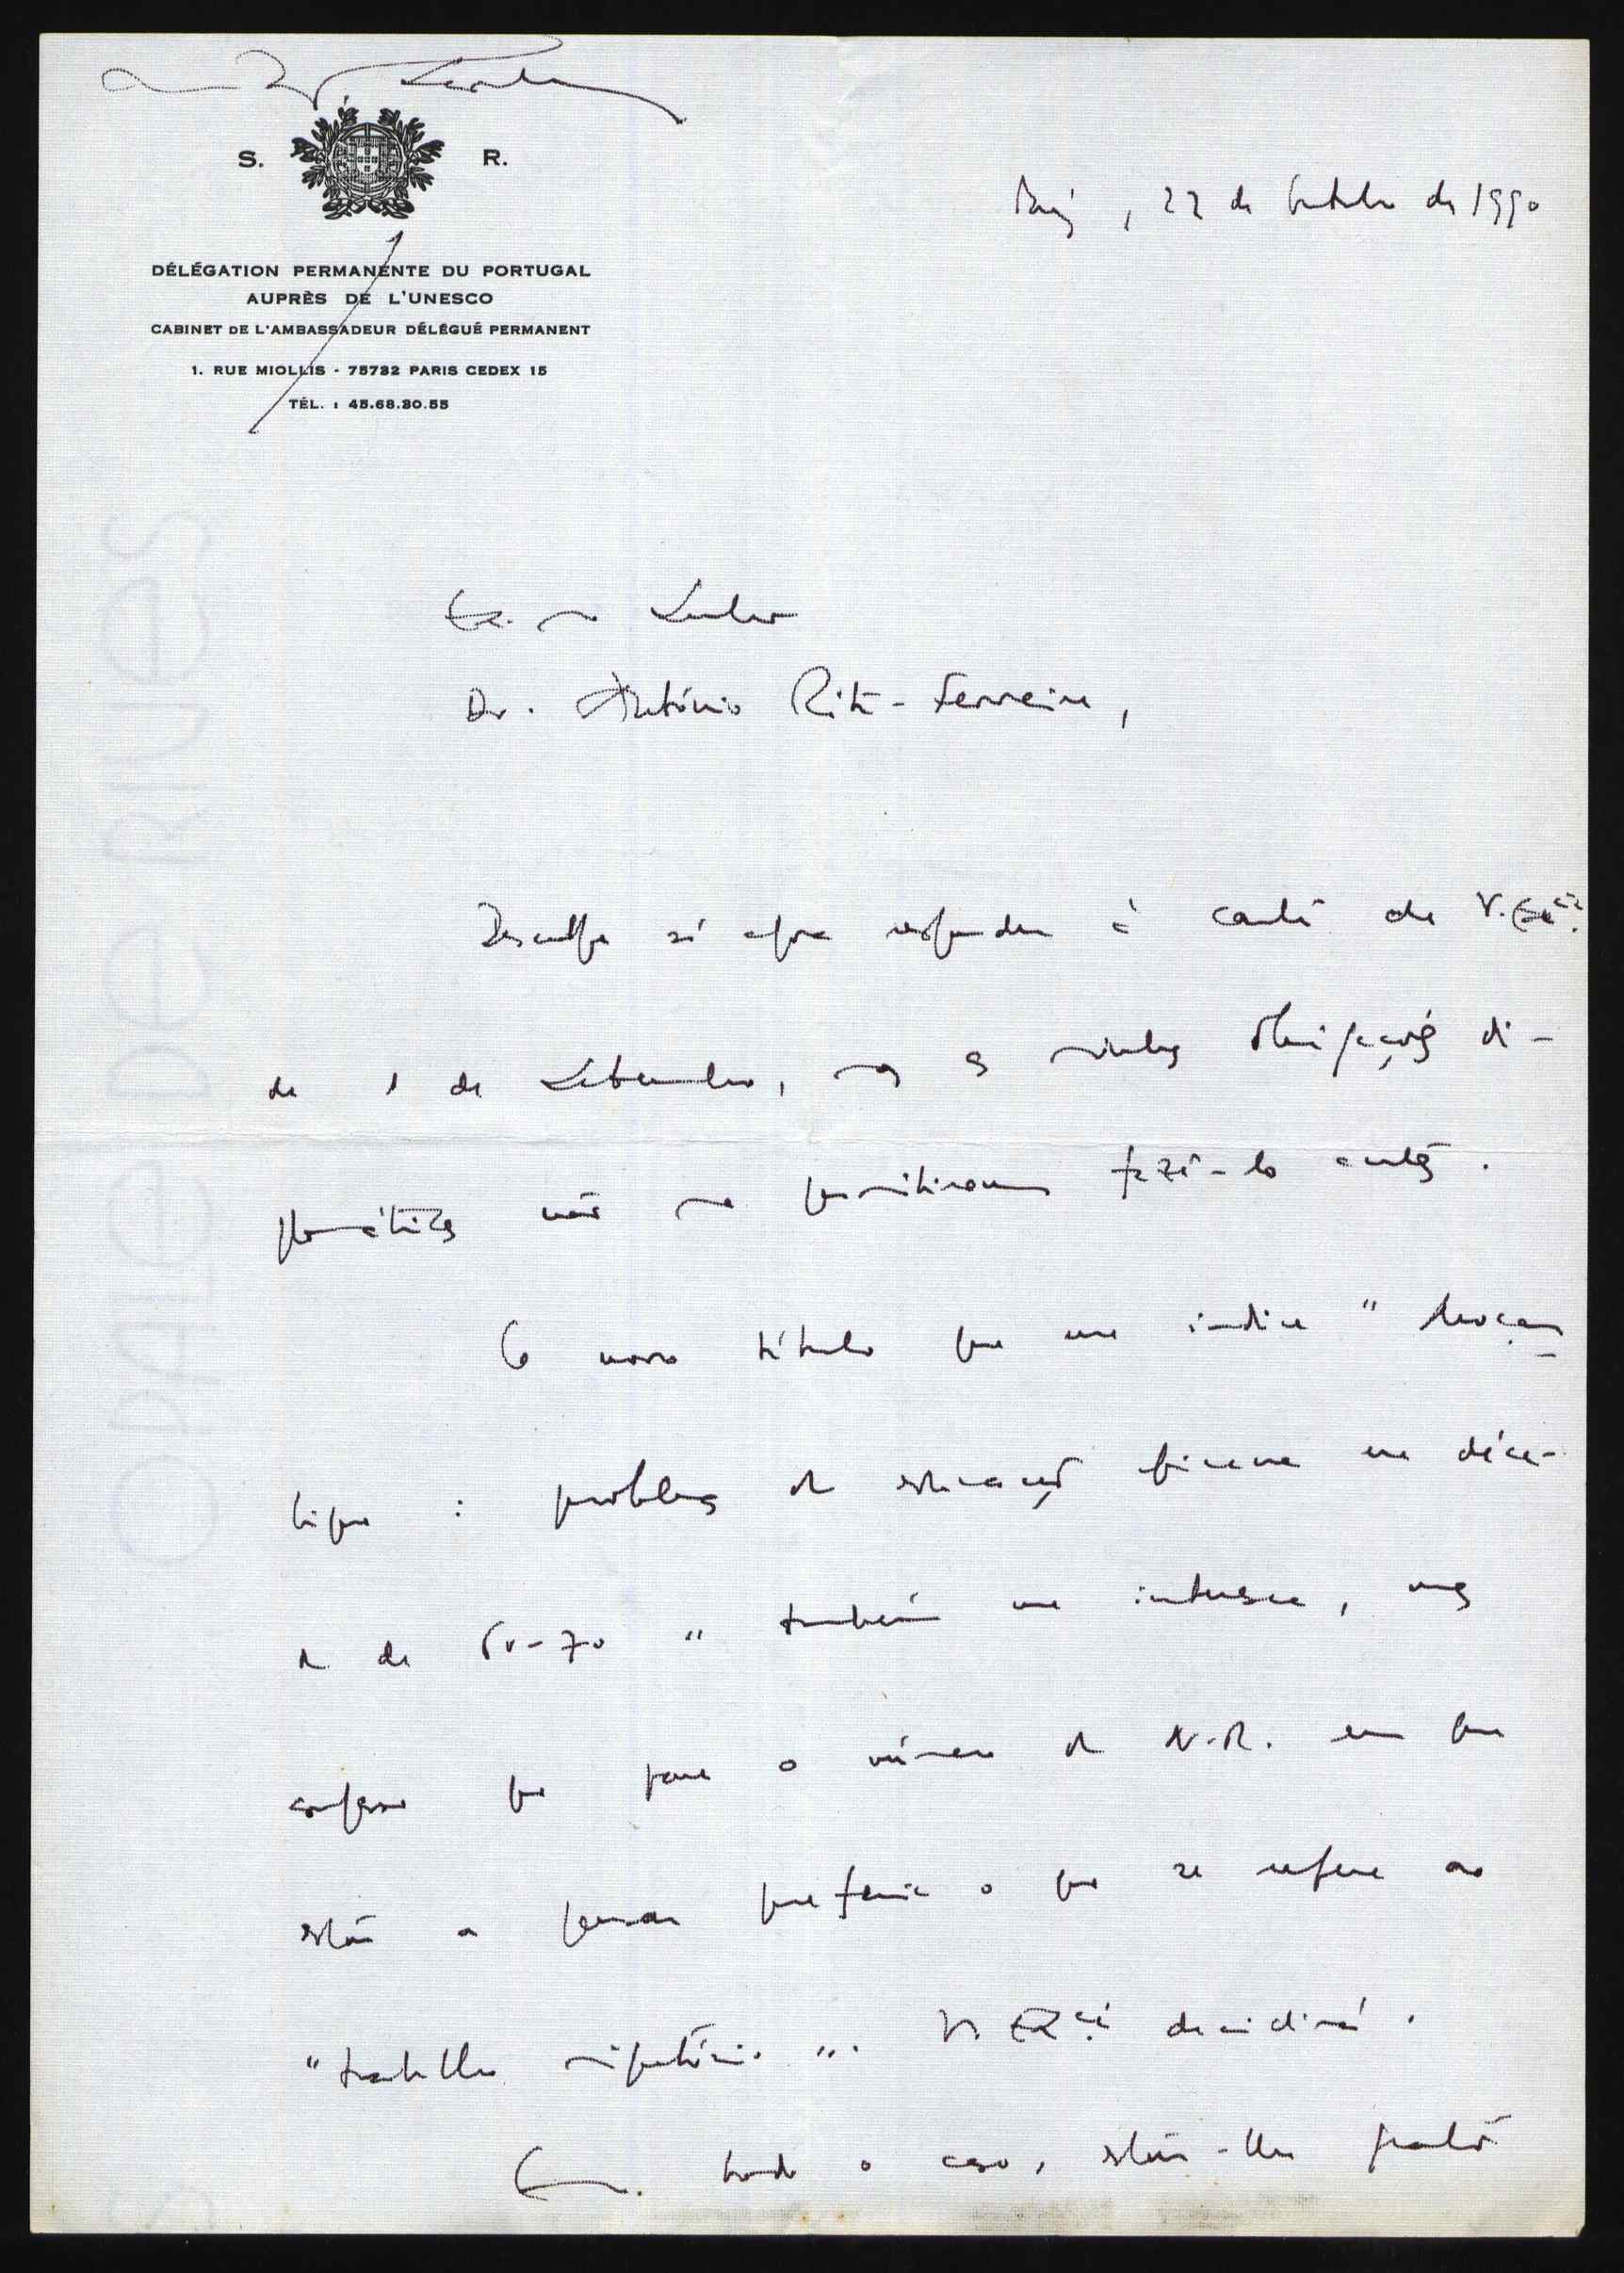 S. R.
DÉLÉGATION PERMANENTE DU PORTUGAL
AUPRÈS DE L'UNESCO
CABINET DE L'AMBASSADEUR DÉLÉGUÉ PERMANENT
1. RUE MIOLLIS - 75732 PARIS CEDEX 15
TÉL. : 45.68.30.55
Paris, 22 de Outubro de 1990
Exmo Senhor
Dr. António Rita-Ferreira,
Desculpe só agora responder à carta de V. Excia.
de 1 de Setembro, mas as minhas obrigações di-
plomáticas não me permitiram fazê-lo antes.
O novo título que me indica "Moçam-
bique : problemas de educação africana na déca-
da de 60-70" também me interessa, mas
confesso que para o número da N.R. em que
estou a pensar preferia o que se refere ao
"trabalho migratório". V. Excia decidirá.
Em todo o caso, estou-lhe grato
OPALE DE RIVES